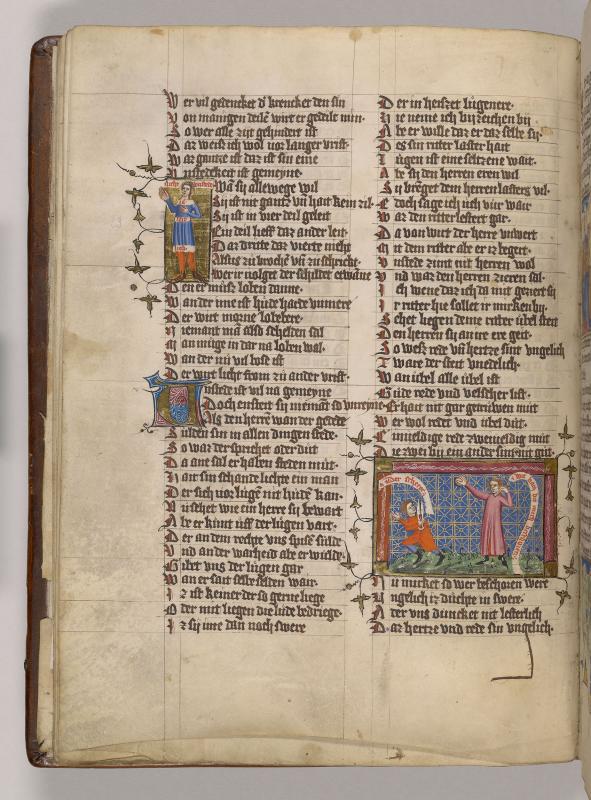 Wer vil gedencket d' krencket den sin
Von manigen deilē wirt er gedeilt min
So wer alle zijt gehindert ist
Daz weiz ich wol vor langer vrist
Waz gantze ist daz ist sin eine
Vnstedekeit ist gemeyne
Wan sij allewege wil
Sij ist nit gantz vn̄ hat kein zil
Sij ist in vier deil geleit
Ein deil lieff daz ander leit
Daz dritte daz vierte nieht
Alsus zubrochē vn̄ zu schricket
Wer ir volget der schildet etwāne
Den er muz loben danne
Wander ime ist hude harte vnmere
Der wirt morne lobebere
Niemant mā also schelden sal
Man muge in dar na loben wal
Wander nu vil bose ist
Der wirt licht from zu ander vrist
Vnstede ist vil na gemeyne
Doch enstett sij niemāt so vnreyne
Als den herrē wander gerede
Sulden sin in allen dingen stede
So waz der sprichet oder dut
Da ane sal er haben steden mut
Han sin schande liechte ein man
Der sich vor lugē nit huden kan
Nu sehet wie ein herre sij bewart
Abe er kint uff der lugen vart
Der an dem rechte vns spise sulde
Vnd an der warheid abe er wulde
Gibet vns der lugen gar
Wan er sait selbe selden war
Iz ist keiner der so gerne liege
Oder mit liegen die lude bedriege
Iz sij ime dan nach swere
Der in heiszet lugenere
Nu neme ich bij zeichen bij
Abe er wille daz er daz selbe sij
Des sin ritter laster hait
Lugen ist eine seltzene wait
Abe sij den herren eren wil
Sij brenget dem herren lasters vil
Doch sage ich uch vur war
Waz den ritter lestert gar
Da von wirt der herre vnwert
Mit dem ritter abe er iz begert
Vnstede zimt nit herren wol
Vnd waz den herren zieren sal
Ich wene daz ich da mit geziert sij
Ir ritter hie sollet ir mirken bij
Sehet liegen deme ritter ubel steit
Den herren sij an ire ere geit
So wes rede vn̄ hertze sint vngelich
Tware der steit vnedelich
Wan ubel alle ubel ist
Gude rede vnd velscher list
Er hait nit gar getruwen mut
Wer wol redet vnd ubel dut
Einueldige rede zweiueldig mut
Die zwei bij ein ander sint nit gut
Nu mircket so wer beschoren were
Vngelich iz duchte in swere
Ader vns duncket nit lesterlich
Daz hertze vnd rede sin vngelich